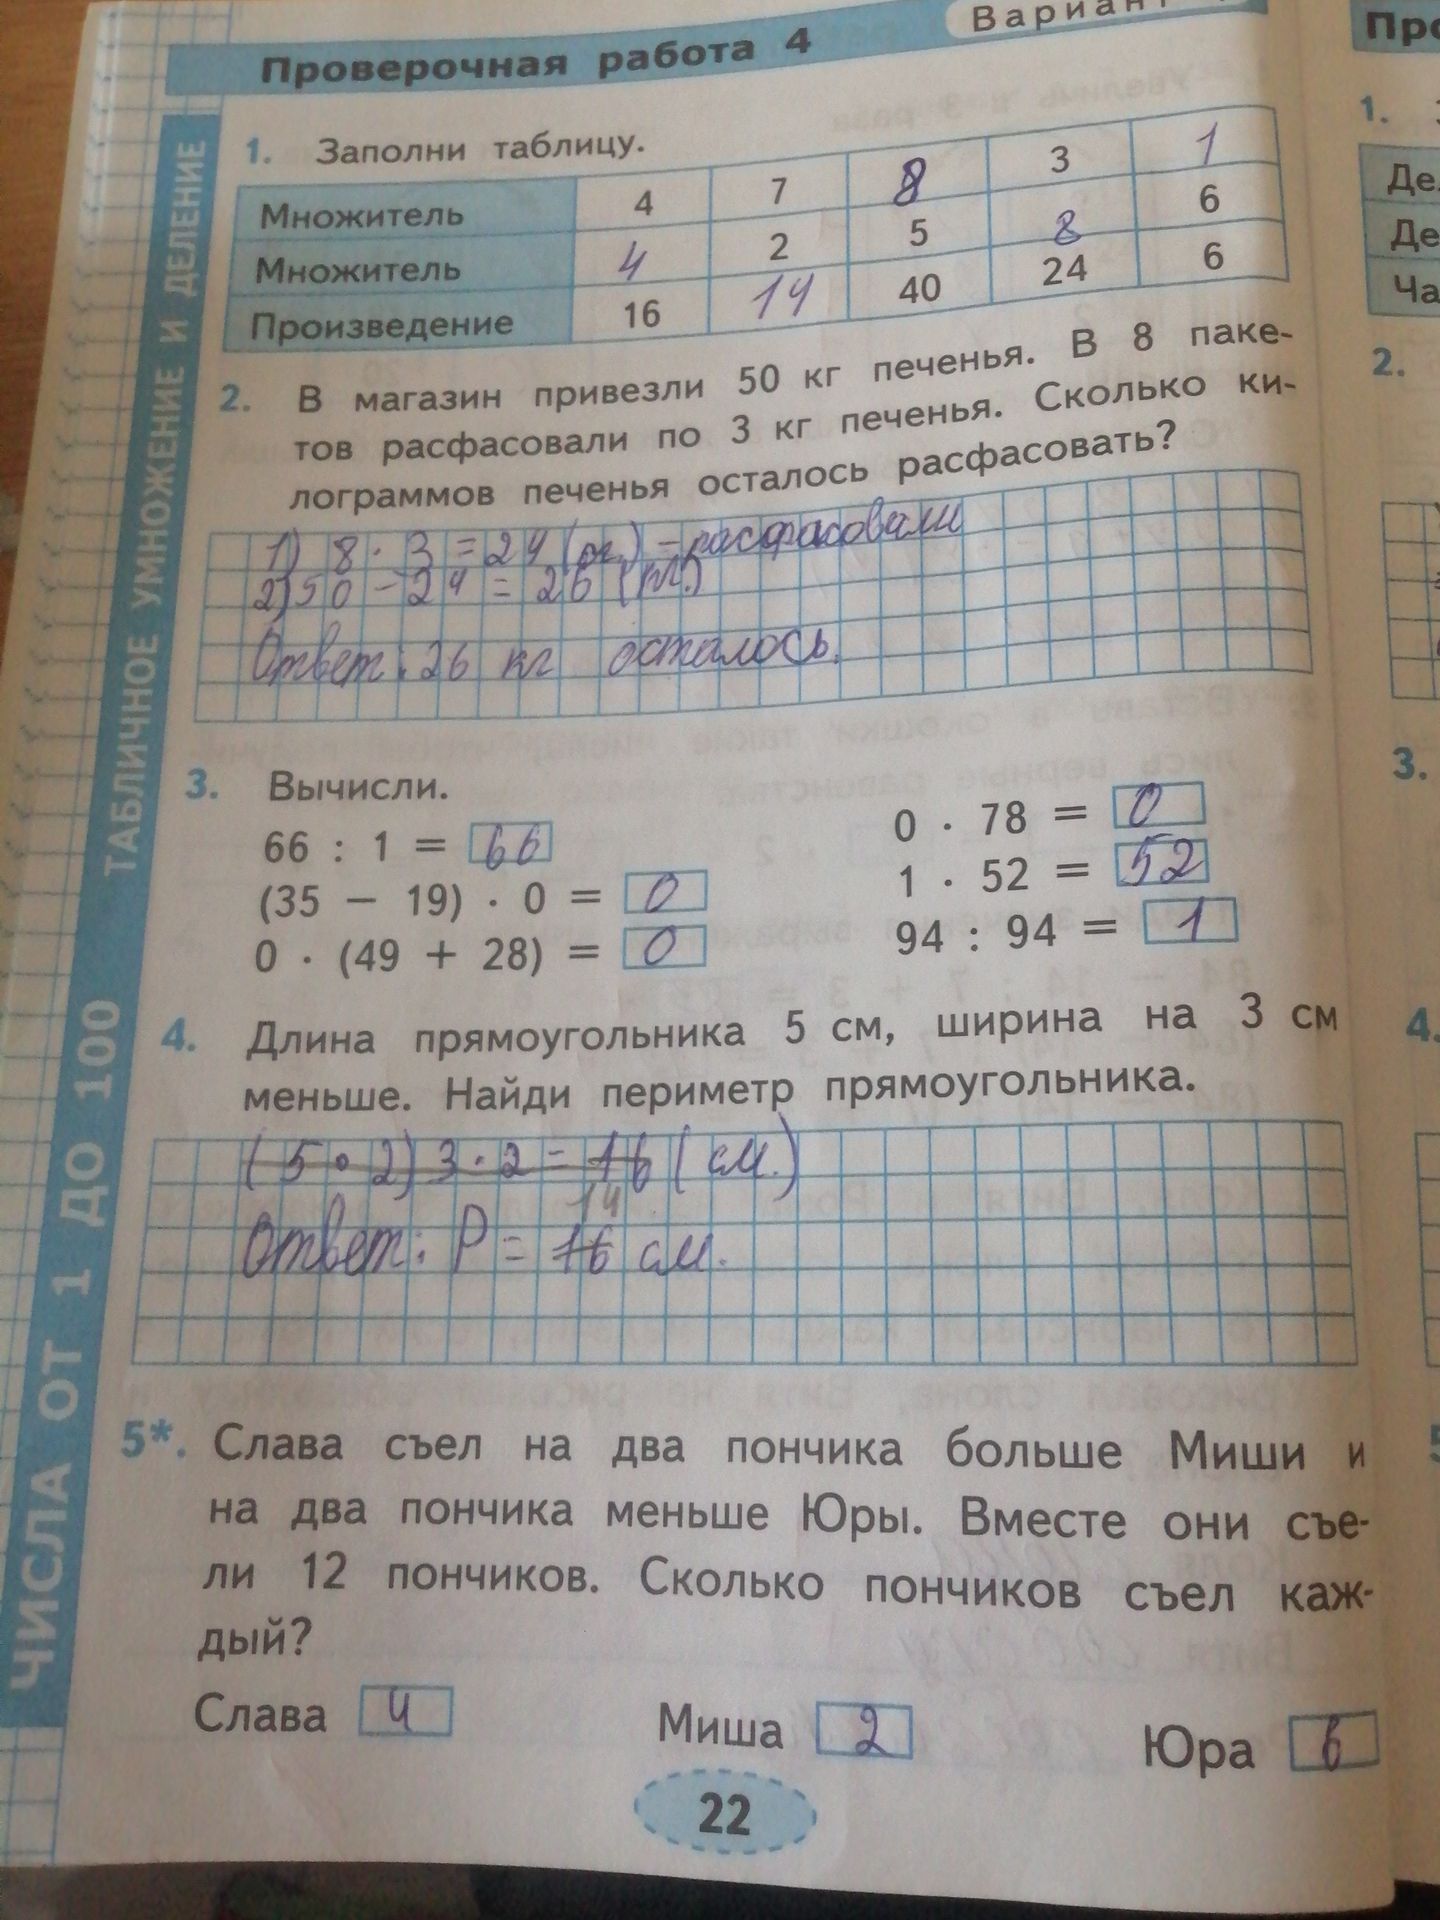 Проверочная работа 4
Вариант
1. Заполни таблицу.
Множитель 4 7 8 3 1
Множитель 4 2 5 8 6
Произведение 16 14 40 24 6
2. В магазин привезли 50 кг печенья. В 8 паке-
тов расфасовали по 3 кг печенья. Сколько ки-
лограммов печенья осталось расфасовать?
1) 8 · 3 = 24 (кг.) – расфасовали
2) 50 – 24 = 26 (кг.)
Ответ: 26 кг осталось.
3. Вычисли.
66 : 1 = 66
(35 − 19) · 0 = 0
0 · (49 + 28) = 0
0 · 78 = 0
1 · 52 = 52
94 : 94 = 1
4. Длина прямоугольника 5 см, ширина на 3 см
меньше. Найди периметр прямоугольника.
(5 · 2) 3 · 2 = 16 (см.)
14
Ответ: P = 16 см.
5*. Слава съел на два пончика больше Миши и
на два пончика меньше Юры. Вместе они съе-
ли 12 пончиков. Сколько пончиков съел каж-
дый?
Слава 4 Миша 2 Юра 6
22
ЧИСЛА ОТ 1 ДО 100 ТАБЛИЧНОЕ УМНОЖЕНИЕ И ДЕЛЕНИЕ
Про
1.
Дел
Де
Ча
2.
3.
4.
5